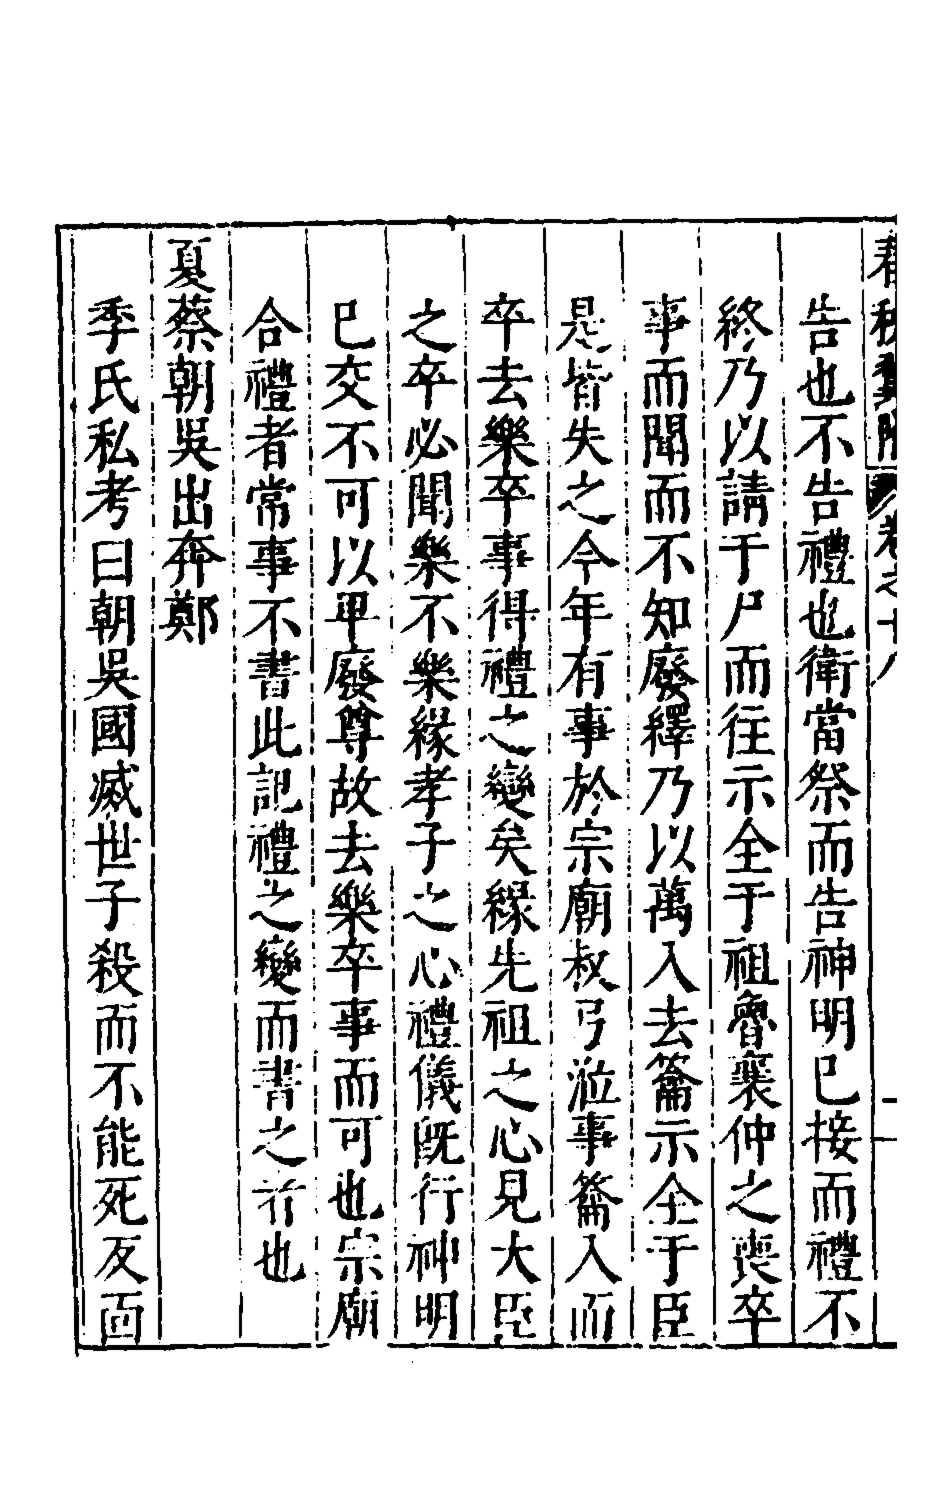 春秋 卷之十八
告也不告禮也衛當祭而告神明已接而禮不
終乃以請于尸而往示全于祖魯襄仲之喪卒
事而聞而不知廢繹乃以萬入去籥示全于臣
是皆失之今年有事於宗廟叔弓涖事籥入而
卒去樂卒事得禮之變矣緣先祖之心見大臣
之卒必聞樂不樂緣孝子之心禮儀既行神明
已交不可以卑廢尊故去樂卒事而可也宗廟
合禮者常事不書此記禮之變而書之者也
夏蔡朝吳出奔鄭
季氏私考曰朝吳國滅世子殺而不能死反面